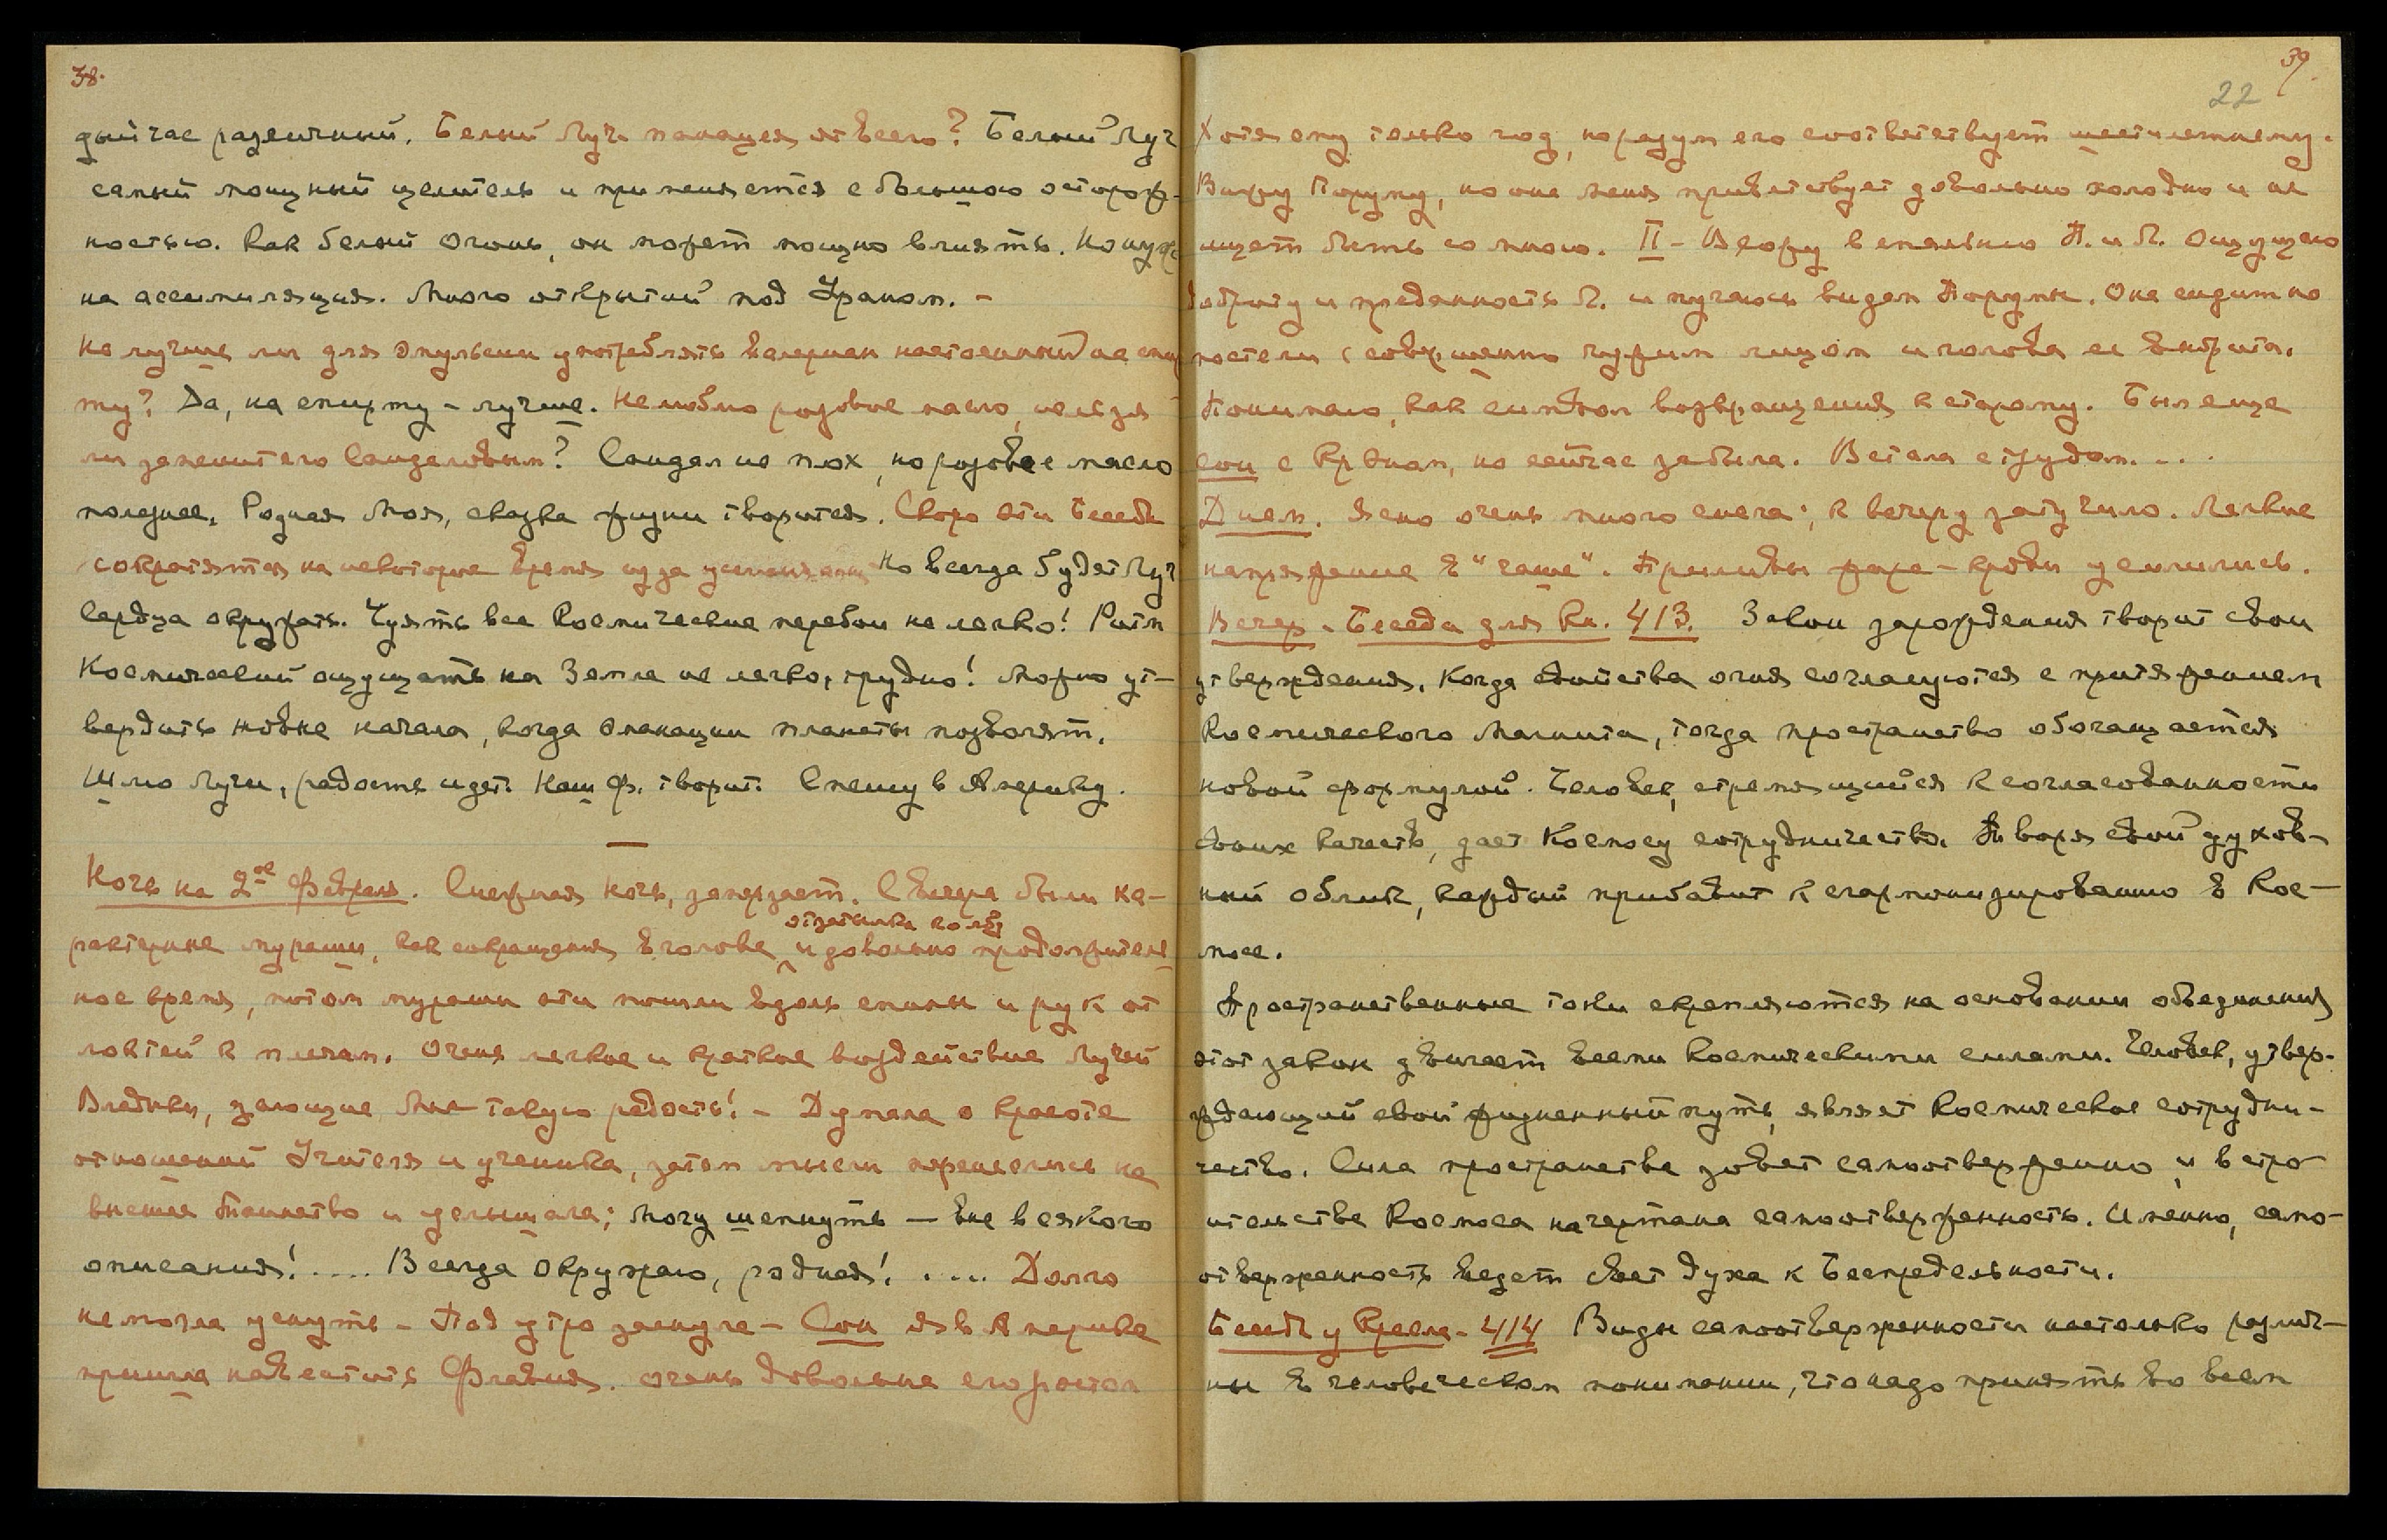 38.
дый час различный. Белый Луч панацея от всего? Белый Луч
самый мощный целитель и применяется с большою осторож-
ностью. Как белый огонь, он может мощно влиять. Но нуж-
на ассимиляция. Много открытий под Ураном. –
Не лучше ли для эмульсии употреблять валериан настоенный на спир
ту? Да, на спирту – лучше. Не люблю розовое масло, нельзя
ли заменить его Сандаловым? Сандал не плох, но розовое масло
полезнее. Родная Моя, сказка жизни творится. Скоро эти Беседы
сократятся на некоторое время из за Но всегда будет Луч
Сердца окружать. Чуять все Космические перебои не легко! Ритм
Космический ощущать на Земле не легко, трудно! Можно ут-
вердить новые начала, когда эманации планеты позволят.
Шлю Лучи, радость идет. Наш Ф. творит. Спешу в Америку.
Ночь на 2ое Февраля. Снежная ночь, замерзает. С вечера были ха-
рактерные мураши, как сокращения в голове и довольно продолжитель
ное время, потом мураши эти пошли вдоль спины и рук от
локтей к плечам. Очень легкое и краткое воздействие Лучей
Владыки, дающие Мне такую радость! – Думала о красоте
отношений Учителя и ученика, затем мысли перенеслись на
высшее Таинство и услышала; Могу шепнуть – вне всякого
описания! .... Всегда окружаю, родная! ..... Долго
не могла уснуть – Под утро заснула – Сон я в Америке
пришла навестить Флавия. очень довольна его ростом
39.
22
Хотя ему только год, но разум его соответствует шестилетнему.
Вижу Поруму, но она меня приветствует довольно холодно и не
ищет быть со мною. II – Вхожу в спальню П. и Л. Ощущаю
доброту и преданность Л. и пугаюсь видом Порумы. Она сидит на
постели с совершенно чужим лицом и голова ее выбрита.
Понимаю, как символ возвращения к старому. Был еще
сон с но сейчас забыла. Встала с трудом. ...
Днем. Ясно очень много снега; к вечеру затучило. Легкое
напряжение в "чаше". Приливы жара – крови усилились.
Вечер – Беседа для Кн. 413. Закон зарождения творит свои
утверждения. Когда свойства огня согласуются с притяжением
Космического Магнита, тогда пространство обогащается
новой формулой. Человек, стремящийся к согласованности
своих качеств, дает Космосу сотрудничество. Творя свой духов-
ный облик, каждый прибавит к сгармонизированию в Кос-
мосе.
Пространственные токи скрепляются на основании объединения
этот закон движет всеми Космическими силами. Человек, утвер-
ждающий свой жизненный путь, являет Космическое сотрудни-
чество. Сила пространства зовет самоотверженно и в стро
ительстве Космоса начертана самоотверженность. Именно, само-
отверженность ведет свет духа к Беспредельности.
Беседа у Кресла – 414 Виды самоотверженности настолько различ-
ны в человеческом понимании, что надо принять во всем